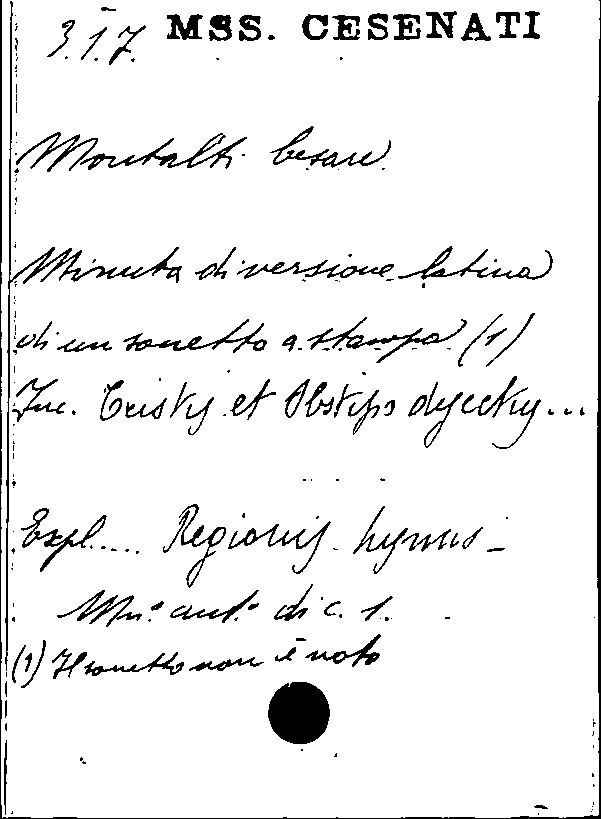 3.1.7. MSS. CESENATI
Montalti Cesare
Minuta di versione latina
di un sonetto a stampa (1)
Inc. Tristis et Obstips dejectis...
Expl.... Regionis hymus -
Mn.º aut.º di c. 1.
(1) Il sonetto non è noto